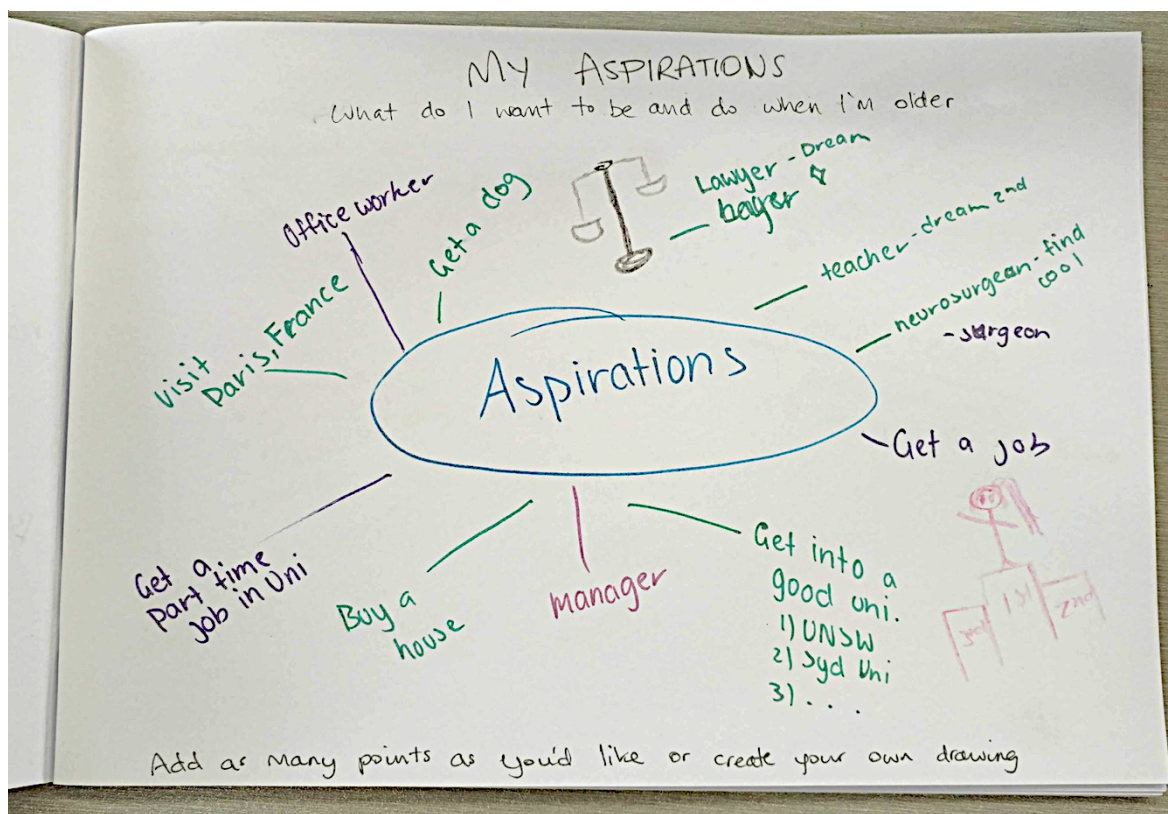 MY ASPIRATIONS
What do I want to be and do when I'm older
Office worker
Get a dog
Lawyer - Dream
teacher - dream 2nd
neurosurgean - find
cool
- surgeon
visit
Paris, France
Aspirations
Get a job
Get a
part time
job in Uni
Buy a
house
manager
Get into a
good uni.
1) UNSW
2) Syd Uni
3) . . .
3rd
1st
2nd
Add as many points as you'd like or create your own drawing